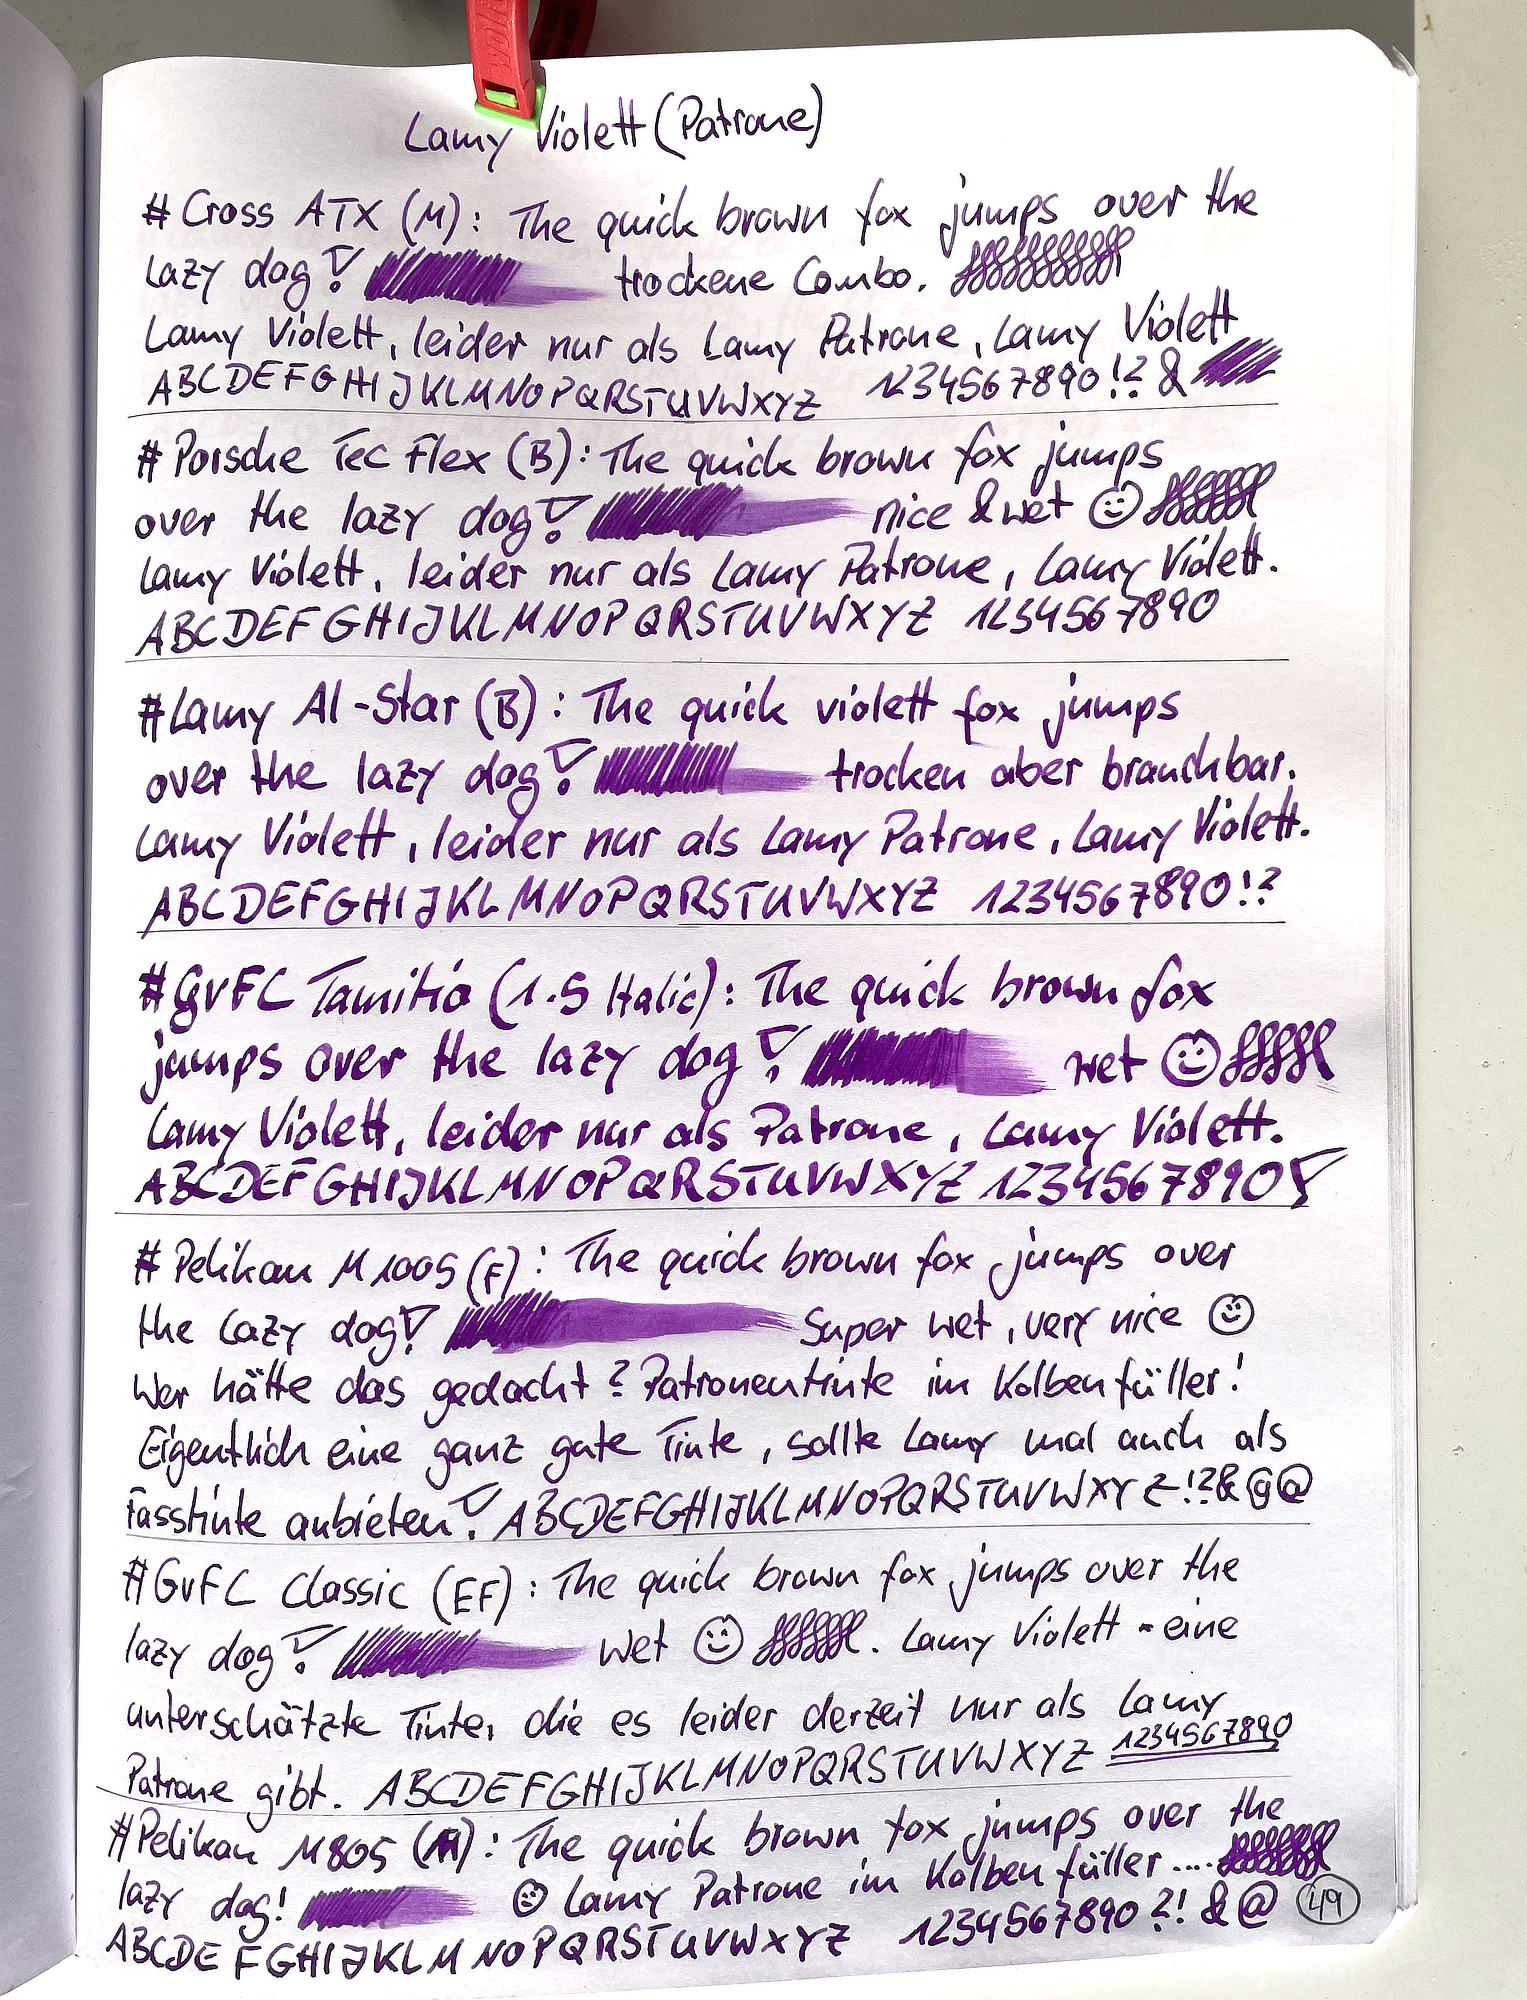 Lamy Violett (Patrone)
# Cross ATX (M): The quick brown fox jumps over the
lazy dog! trockene Combo.
Lamy Violett, leider nur als Lamy Patrone, Lamy Violett
ABCDEFGHIJKLMNOPQRSTUVWXYZ 1234567890!? &
# Porsche Tec Flex (B): The quick brown fox jumps
over the lazy dog! nice & wet ☺
Lamy Violett, leider nur als Lamy Patrone, Lamy Violett.
ABCDEFGHIJKLMNOPQRSTUVWXYZ 1234567890
# Lamy Al-Star (B): The quick violett fox jumps
over the lazy dog! trocken aber brauchbar.
Lamy Violett, leider nur als Lamy Patrone, Lamy Violett.
ABCDEFGHIJKLMNOPQRSTUVWXYZ 1234567890!?
# GvFC Tamitio (1.5 Italic): The quick brown fox
jumps over the lazy dog! wet ☺
Lamy Violett, leider nur als Patrone, Lamy Violett.
ABCDEFGHIJKLMNOPQRSTUVWXYZ 1234567890!
# Pelikan M1005 (F): The quick brown fox jumps over
the lazy dog! Super wet, very nice ☺
Wer hätte das gedacht? Patronentinte im Kolbenfüller!
Eigentlich eine ganz gute Tinte, sollte Lamy mal auch als
Fasstinte anbieten! ABCDEFGHIJKLMNOPQRSTUVWXYZ!?&@@
# GvFC Classic (EF): The quick brown fox jumps over the
lazy dog! wet ☺ . Lamy Violett - eine
unterschätzte Tinte, die es leider derzeit nur als Lamy
Patrone gibt. ABCDEFGHIJKLMNOPQRSTUVWXYZ 1234567890
# Pelikan M805 (M): The quick brown fox jumps over the
lazy dog! ☺ Lamy Patrone im Kolbenfüller....
ABCDEFGHIJKLMNOPQRSTUVWXYZ 1234567890?! & @ 49